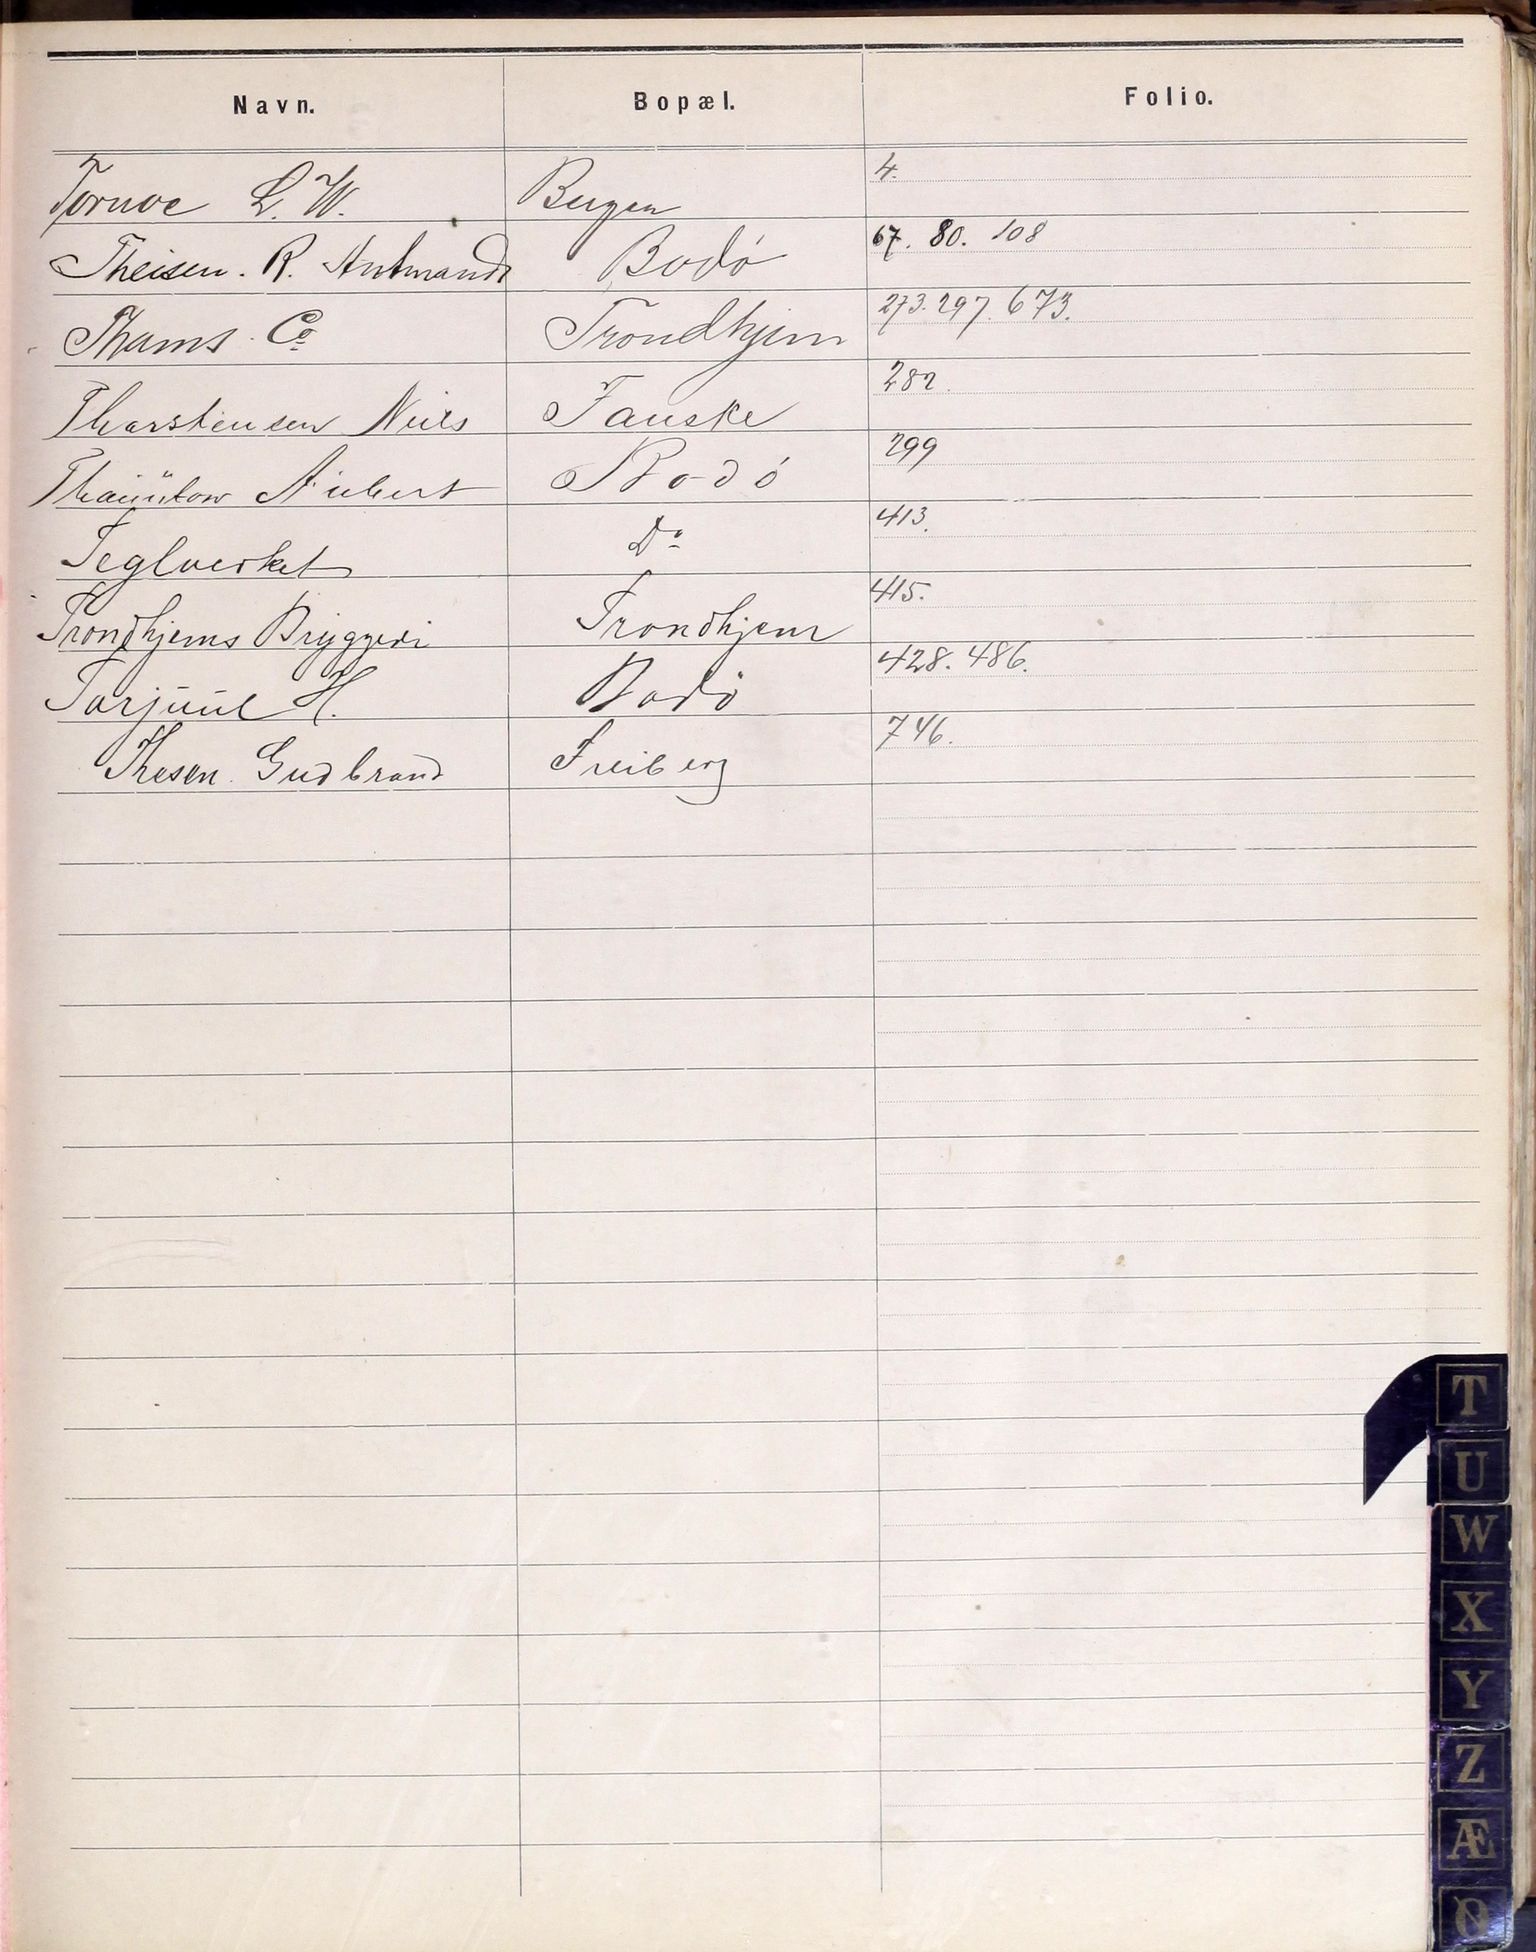 Navn. Bopæl. Folio.
Tornoe L. W. Bergen 4.
Theisen. R. Amtmand Bodó 67. 80. 108
Thams Co Trondhjem 273. 297. 673.
Thorstensen Niels Fauske 282.
Thaüülow Aubert Bodó 299
Teglverket Do 413.
Trondhjems Bryggeri Trondhjem 415.
Torjuul H. Bodö 428. 486.
Thesen. Gudbrand Freiberg 746.
T
U
W
X
Y
Z
Æ
Ø